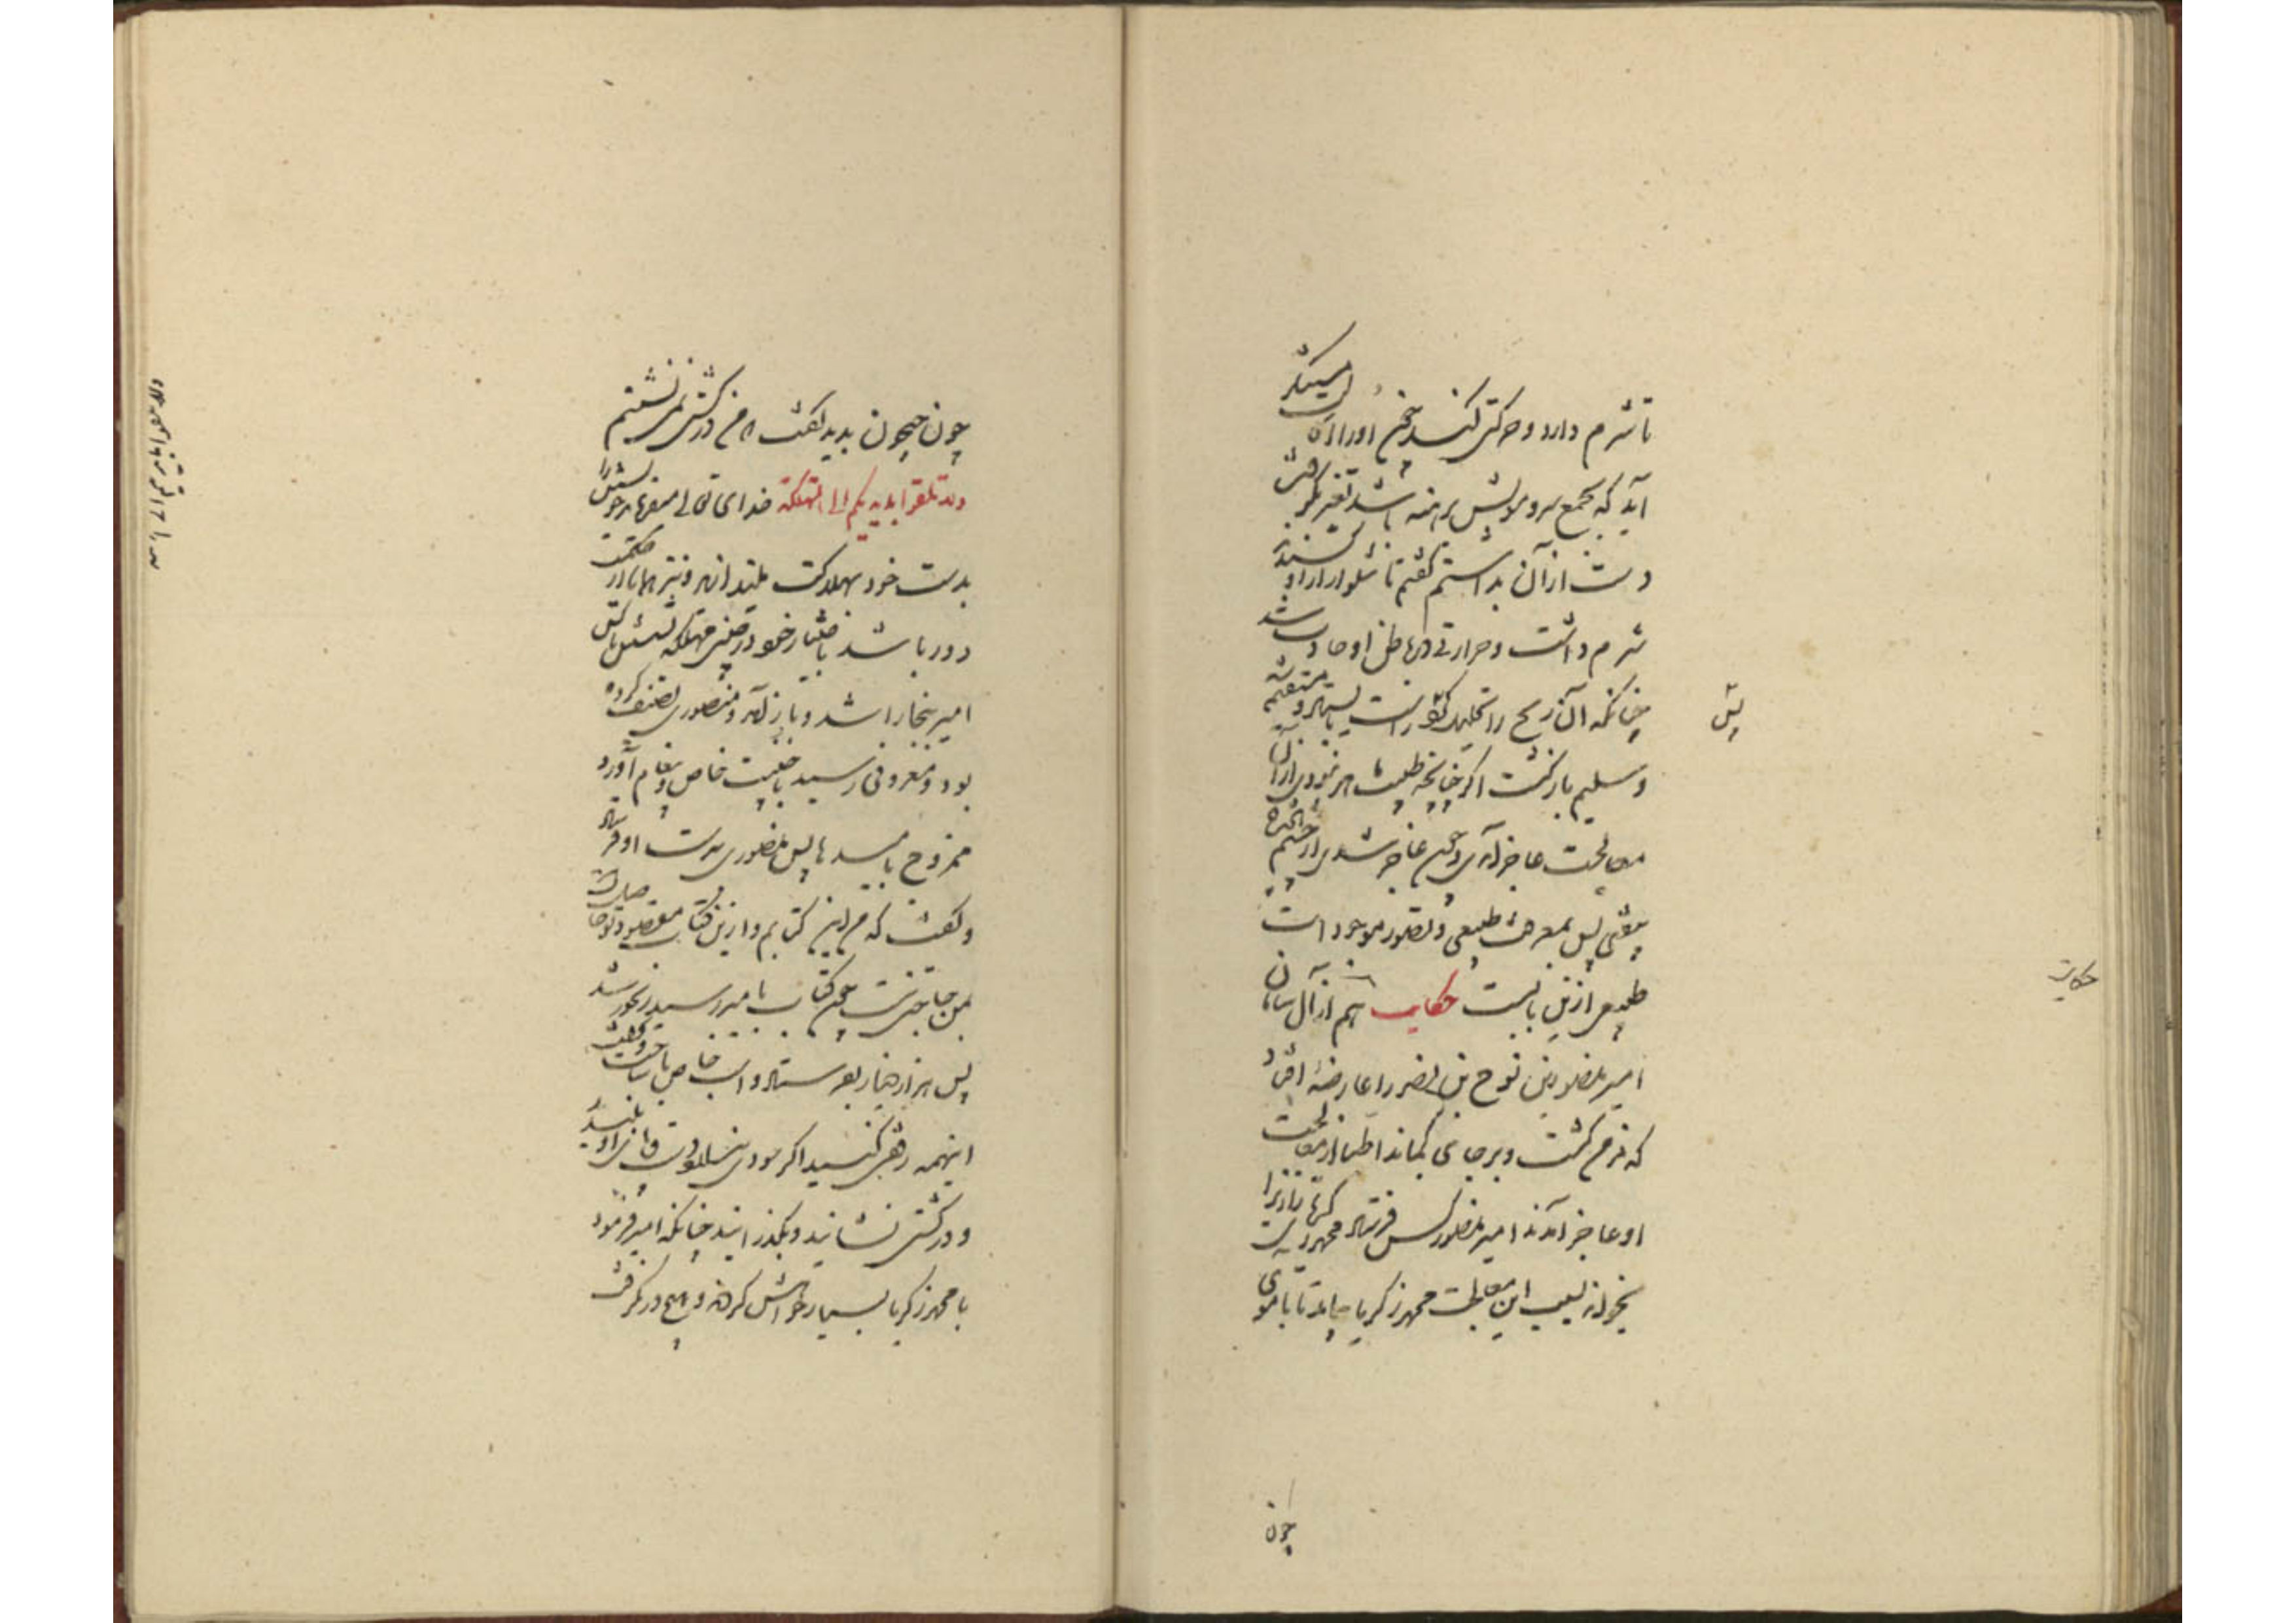 تا شرم دارد و حرکتی کند سخن او را از آن
آید که مجمع سر و رویش برهنه باشد تغیر نگرفت
دست از آن بداشتم گفتم تا شلوار از او بکشند
شرم داشت و حرارتی در باطن او حادث شد
چنانکه آن ریح را تحلیل کرد راست بایستاد و مستقیم
و سلیم بازگشت اگر چنانچه طبیب
معالجت عاجز آمدی و چون عاجز شدی از چشم
بیفتی پس معرفت طبیعی و تصور موجودات
طبیعی ازین بابست حکایت هم از آل سامان
امیر منصور بن نوح بن نصر را عارضهٔ افتاد
که مزمن گشت و بر جای بماند اطبا از معالجت
او عاجز آمدند امیر منصور کس فرستاد و محمد زکریا رازی را
بخواند بسبب این معالجت محمد زکریا بیامد تا بآموی
پس
حکایت
چون
چون جیحون بدید گفت من در کشتی ننشینم
ولا تلقوا بایدیکم الی التهلکة خدای تعالی میفرماید خویشتن را
بدست خود بهلاکت میندازید و نیز همانا از حکمت
دور باشد باختیار خود در چنین مهلکه نشستن تا کس
امیر ببخارا شد و باز آمد او منصوری تصنیف کرده
بود و معروفی رسید با جنیبت خاص و پیغام آورد
ممزوج بامید ها پس منصوری بدست او فرستاد
و گفت که من این کتابم و ازین کتاب مقصود تو حاصل است
بمن حاجتی نیست چون کتاب بامیر رسید رنجور شد
پس هزار دینار بفرستاد و اسب خاص با ساخت و گفت
اینهمه رفق کنید اگر سود ندارد دست و پای او ببندید
و در کشتی نشانید و بگذرانید چنانکه امیر فرمود
با محمد زکریا بسیار خواهش کردند و هیچ در نگرفت